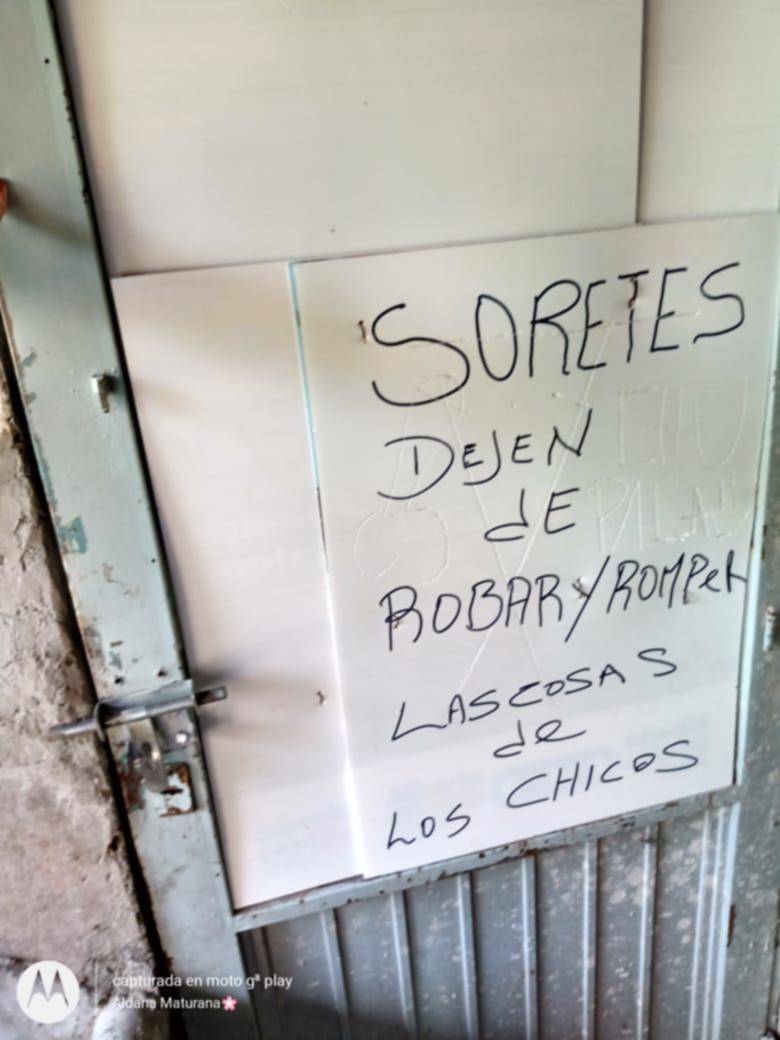 SORETES
DEJEN
dE
ROBAR/ROMPER
LAS COSAS
de
LOS CHICOS
capturada en moto gª play
Aldana Maturana🌸